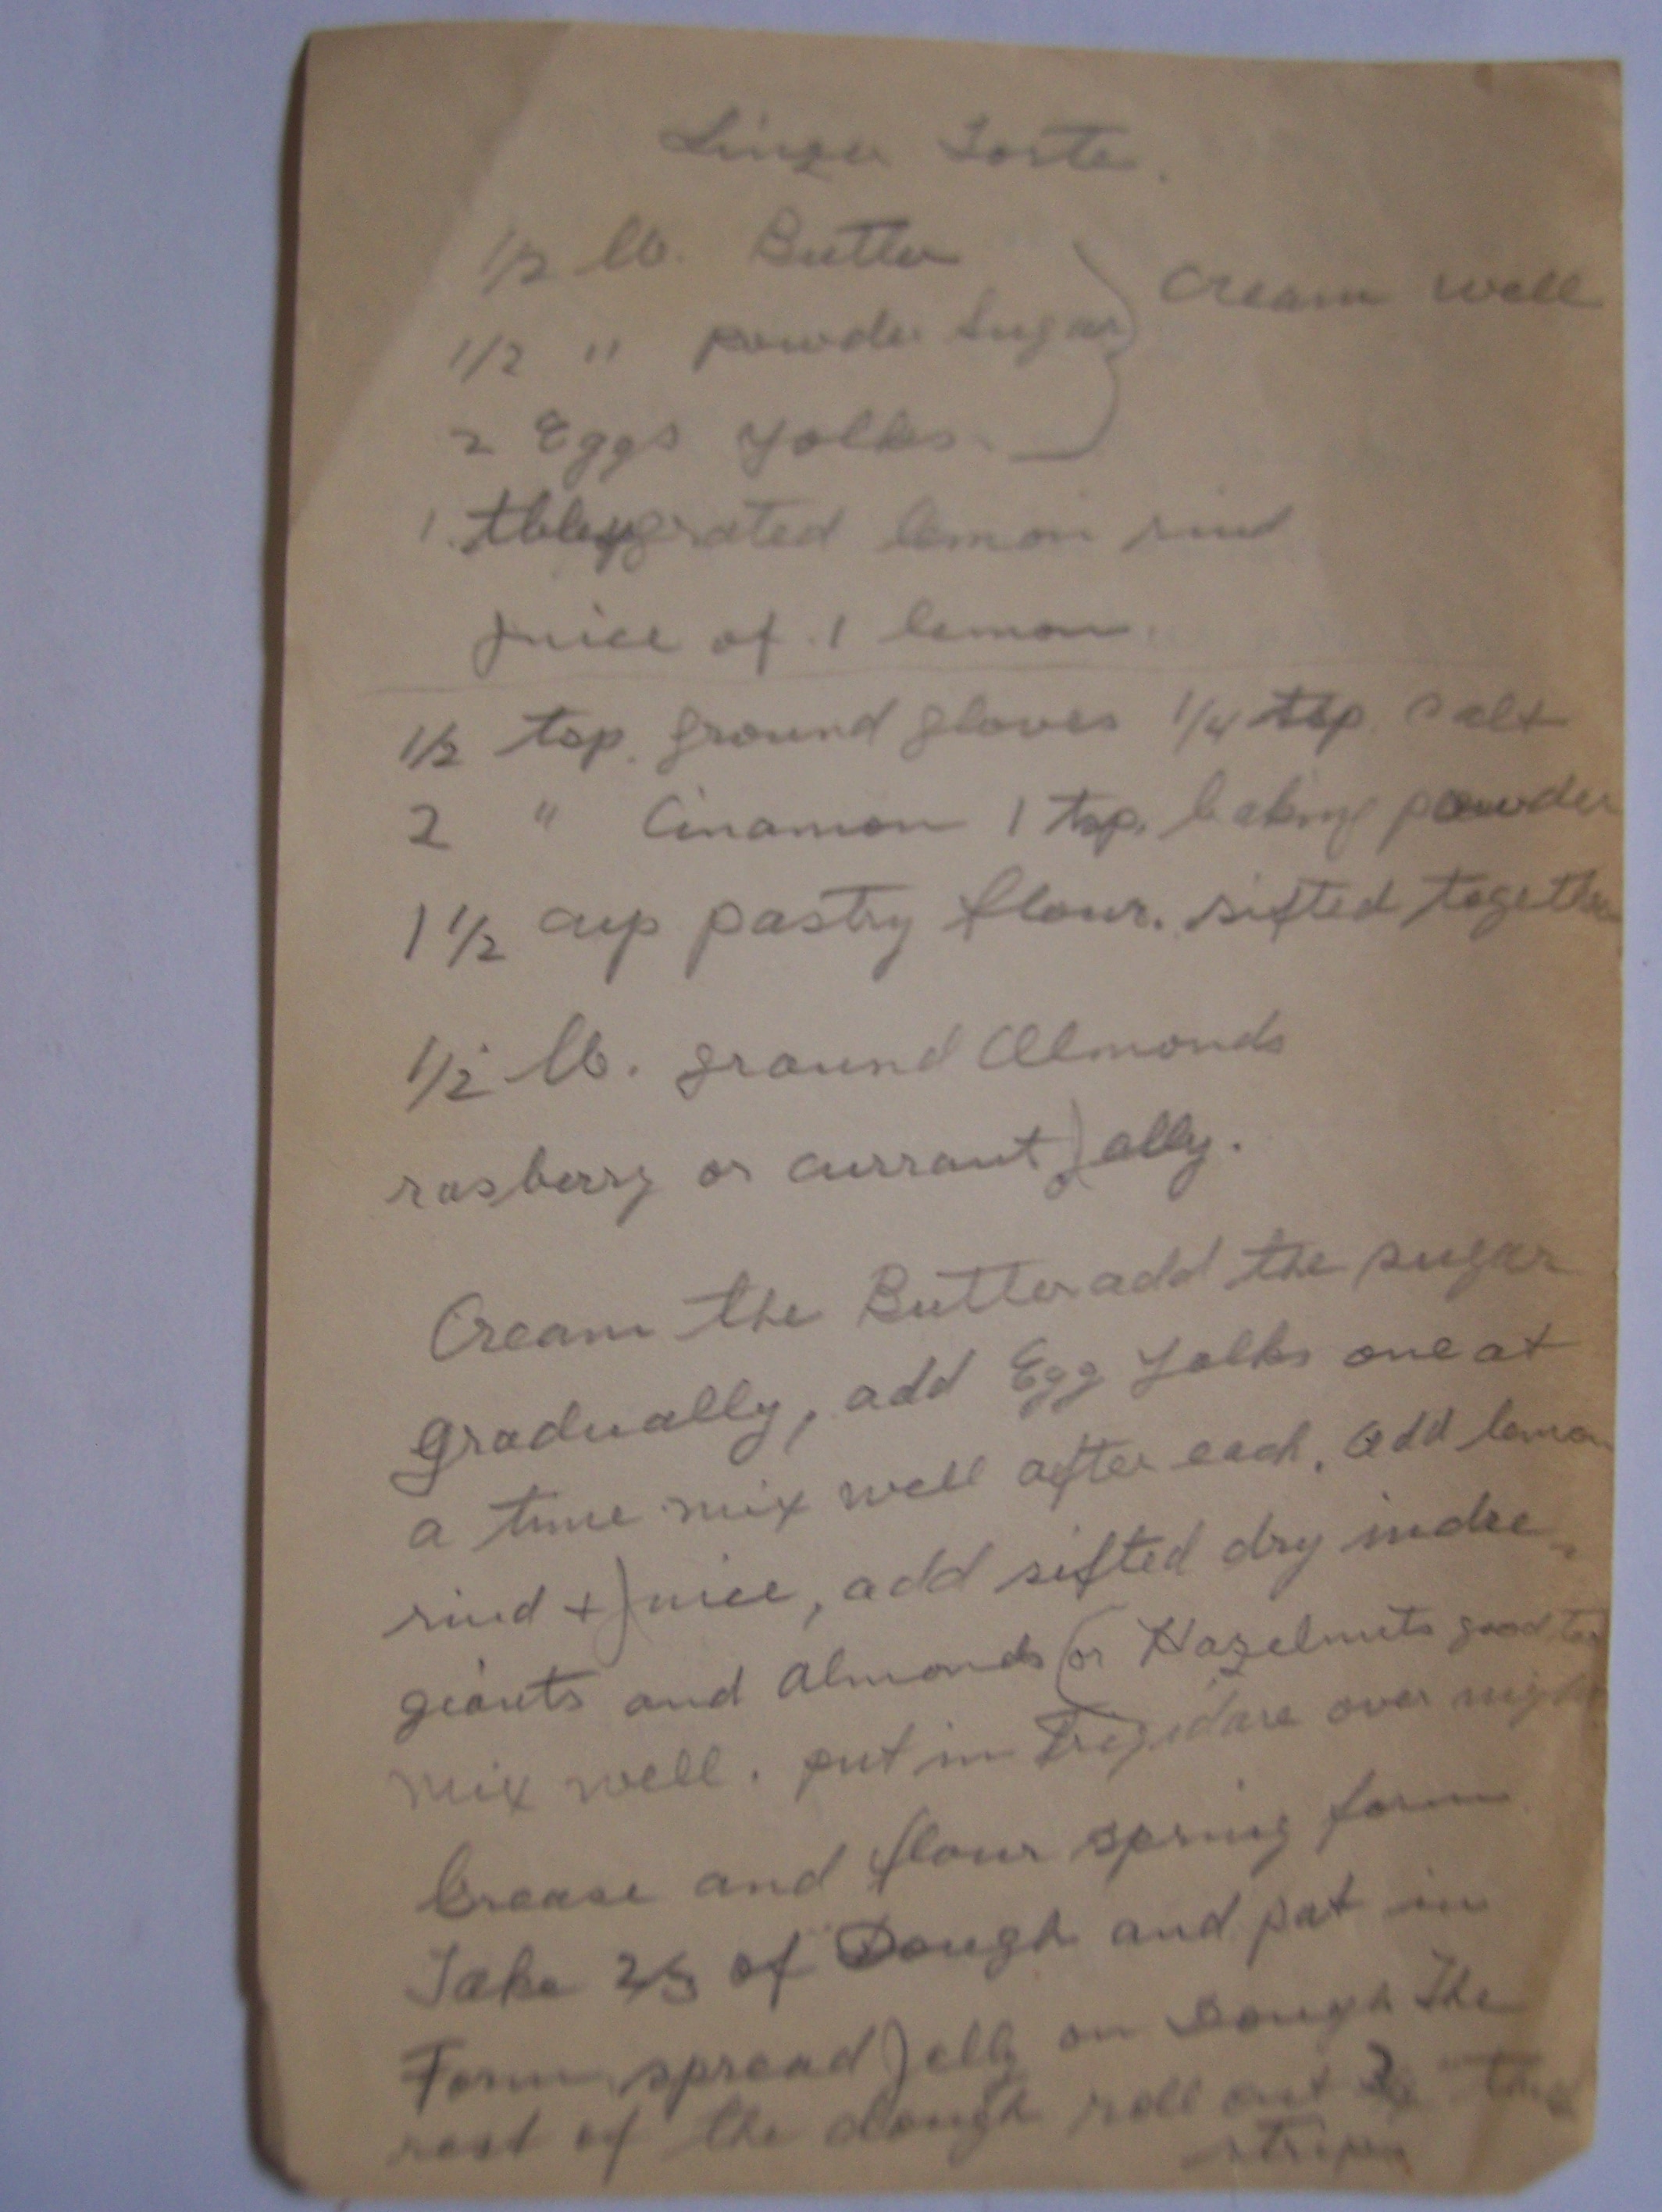 Linzer Torte.
1/2 lb. Butter
1/2 " powder Sugar
Cream well
2 Eggs Yolks
1 grated lemon rind
juice of 1 lemon.
1/2 tsp. ground gloves 1/4 tsp. Salt
2 " Cinamon 1 tsp. baking powder
1 1/2 cup pastry flour. sifted together
1/2 lb. ground Almonds
rasberry or currant jelly.
Cream the Butter add the sugar
gradually, add Egg Yolks one at
a time mix well after each. Add lemon
rind + juice, add sifted dry indre-
giants and Almonds (or Hazelnuts good too)
mix well. put in Frigidare over night
Grease and flour spring form
Take 2/3 of Dough and pat in
Form, spread jelly on Dough The
rest of the dough roll out " thick
stripes